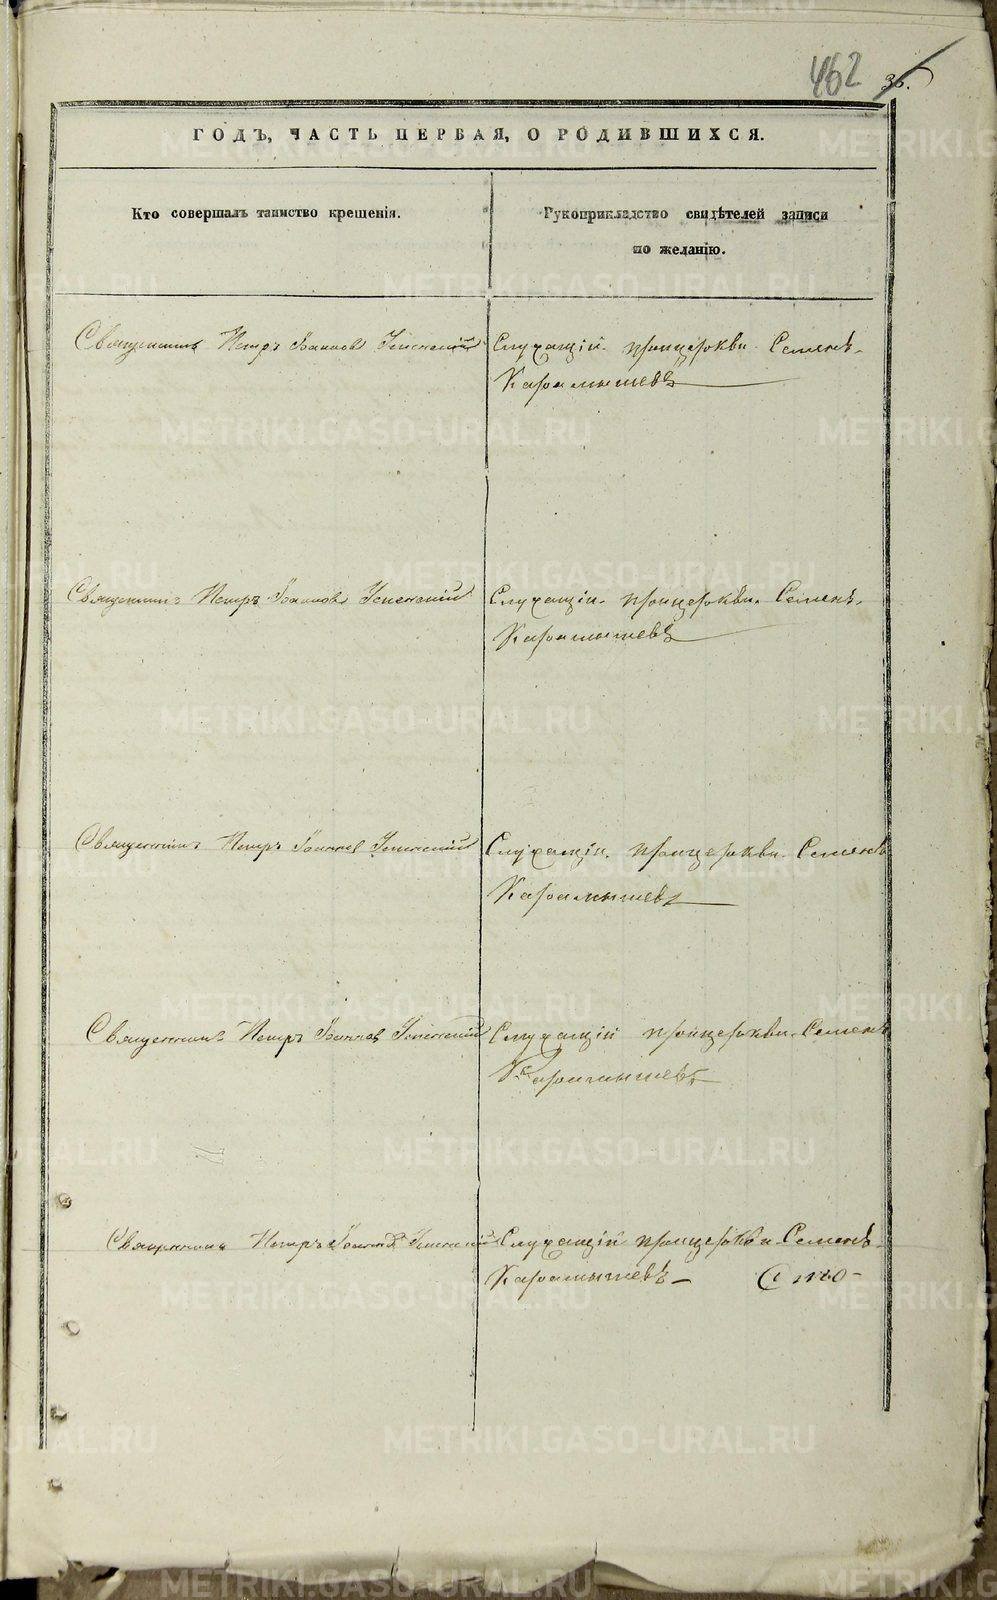 462 36.
ГОДЪ, ЧАСТЬ ПЕРВАЯ, О РОДИВШИХСЯ.
Кто совершалъ таинство крещенія.
Рукоприкладство свидѣтелей записи
по желанію.
Священникъ Петръ Іоанновъ Успенскій
Служащій прицеркви Семенъ
Карамышевъ
Священникъ Петръ Іоанновъ Успенскій
Служащій прицеркви Семенъ
Карамышевъ
Священникъ Петръ Іоанновъ Успенскій
Служащій прицеркви Семенъ
Карамышевъ
Священникъ Петръ Іоанновъ Успенскій
Служащій прицеркви Семенъ
Карамышевъ
Священникъ Петръ Іоанновъ Успенскій
Служащій прицеркви Семенъ
Карамышевъ
METRIKI.GASO-URAL.RU